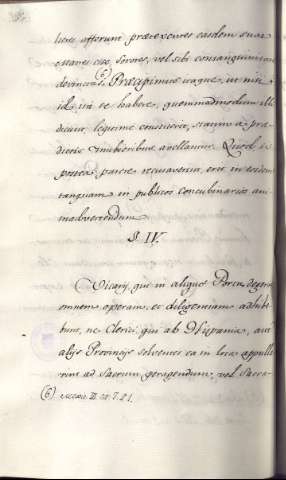 tiose asserunt prætexentes easdem suas
esse, sorores, vel sibi consanguinitate
devinctas. (6) Præcipimus itaque, ut nisi
id, ità se habere, quemadmodum illi
dicunt, legitime constiterit, statim a præ-
dictis mulieribus avellantur. Quod si
postea parere recusaverint, erit in eosdem
tanquam in publicos concubinarios ani-
madvertendum.
§. IV.
Vicarij, qui in aliquo Portu degunt
omnem operam, et diligentiam adhibe-
bunt, ne Clerici, qui ab Hispania, aut
alijs Provincijs solventes ea in loca appulle-
rint ad Sacrum peragendum, vel Sacra-
(6) Mexic. III.